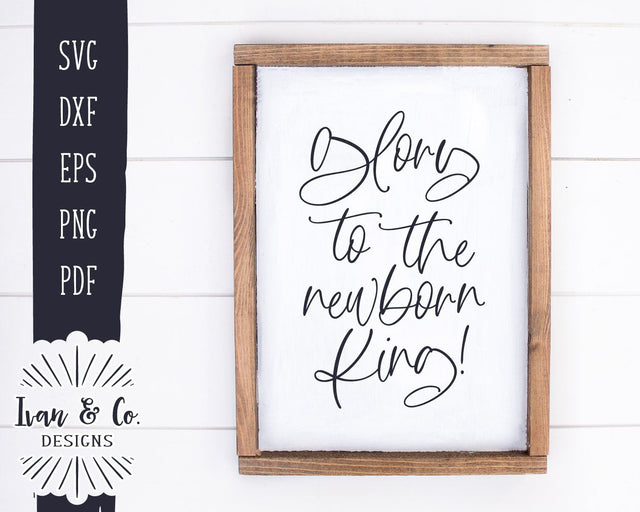 SVG
DXF
EPS
PNG
PDF
Ivan & Co.
DESIGNS
Glory
to the
newborn
King!